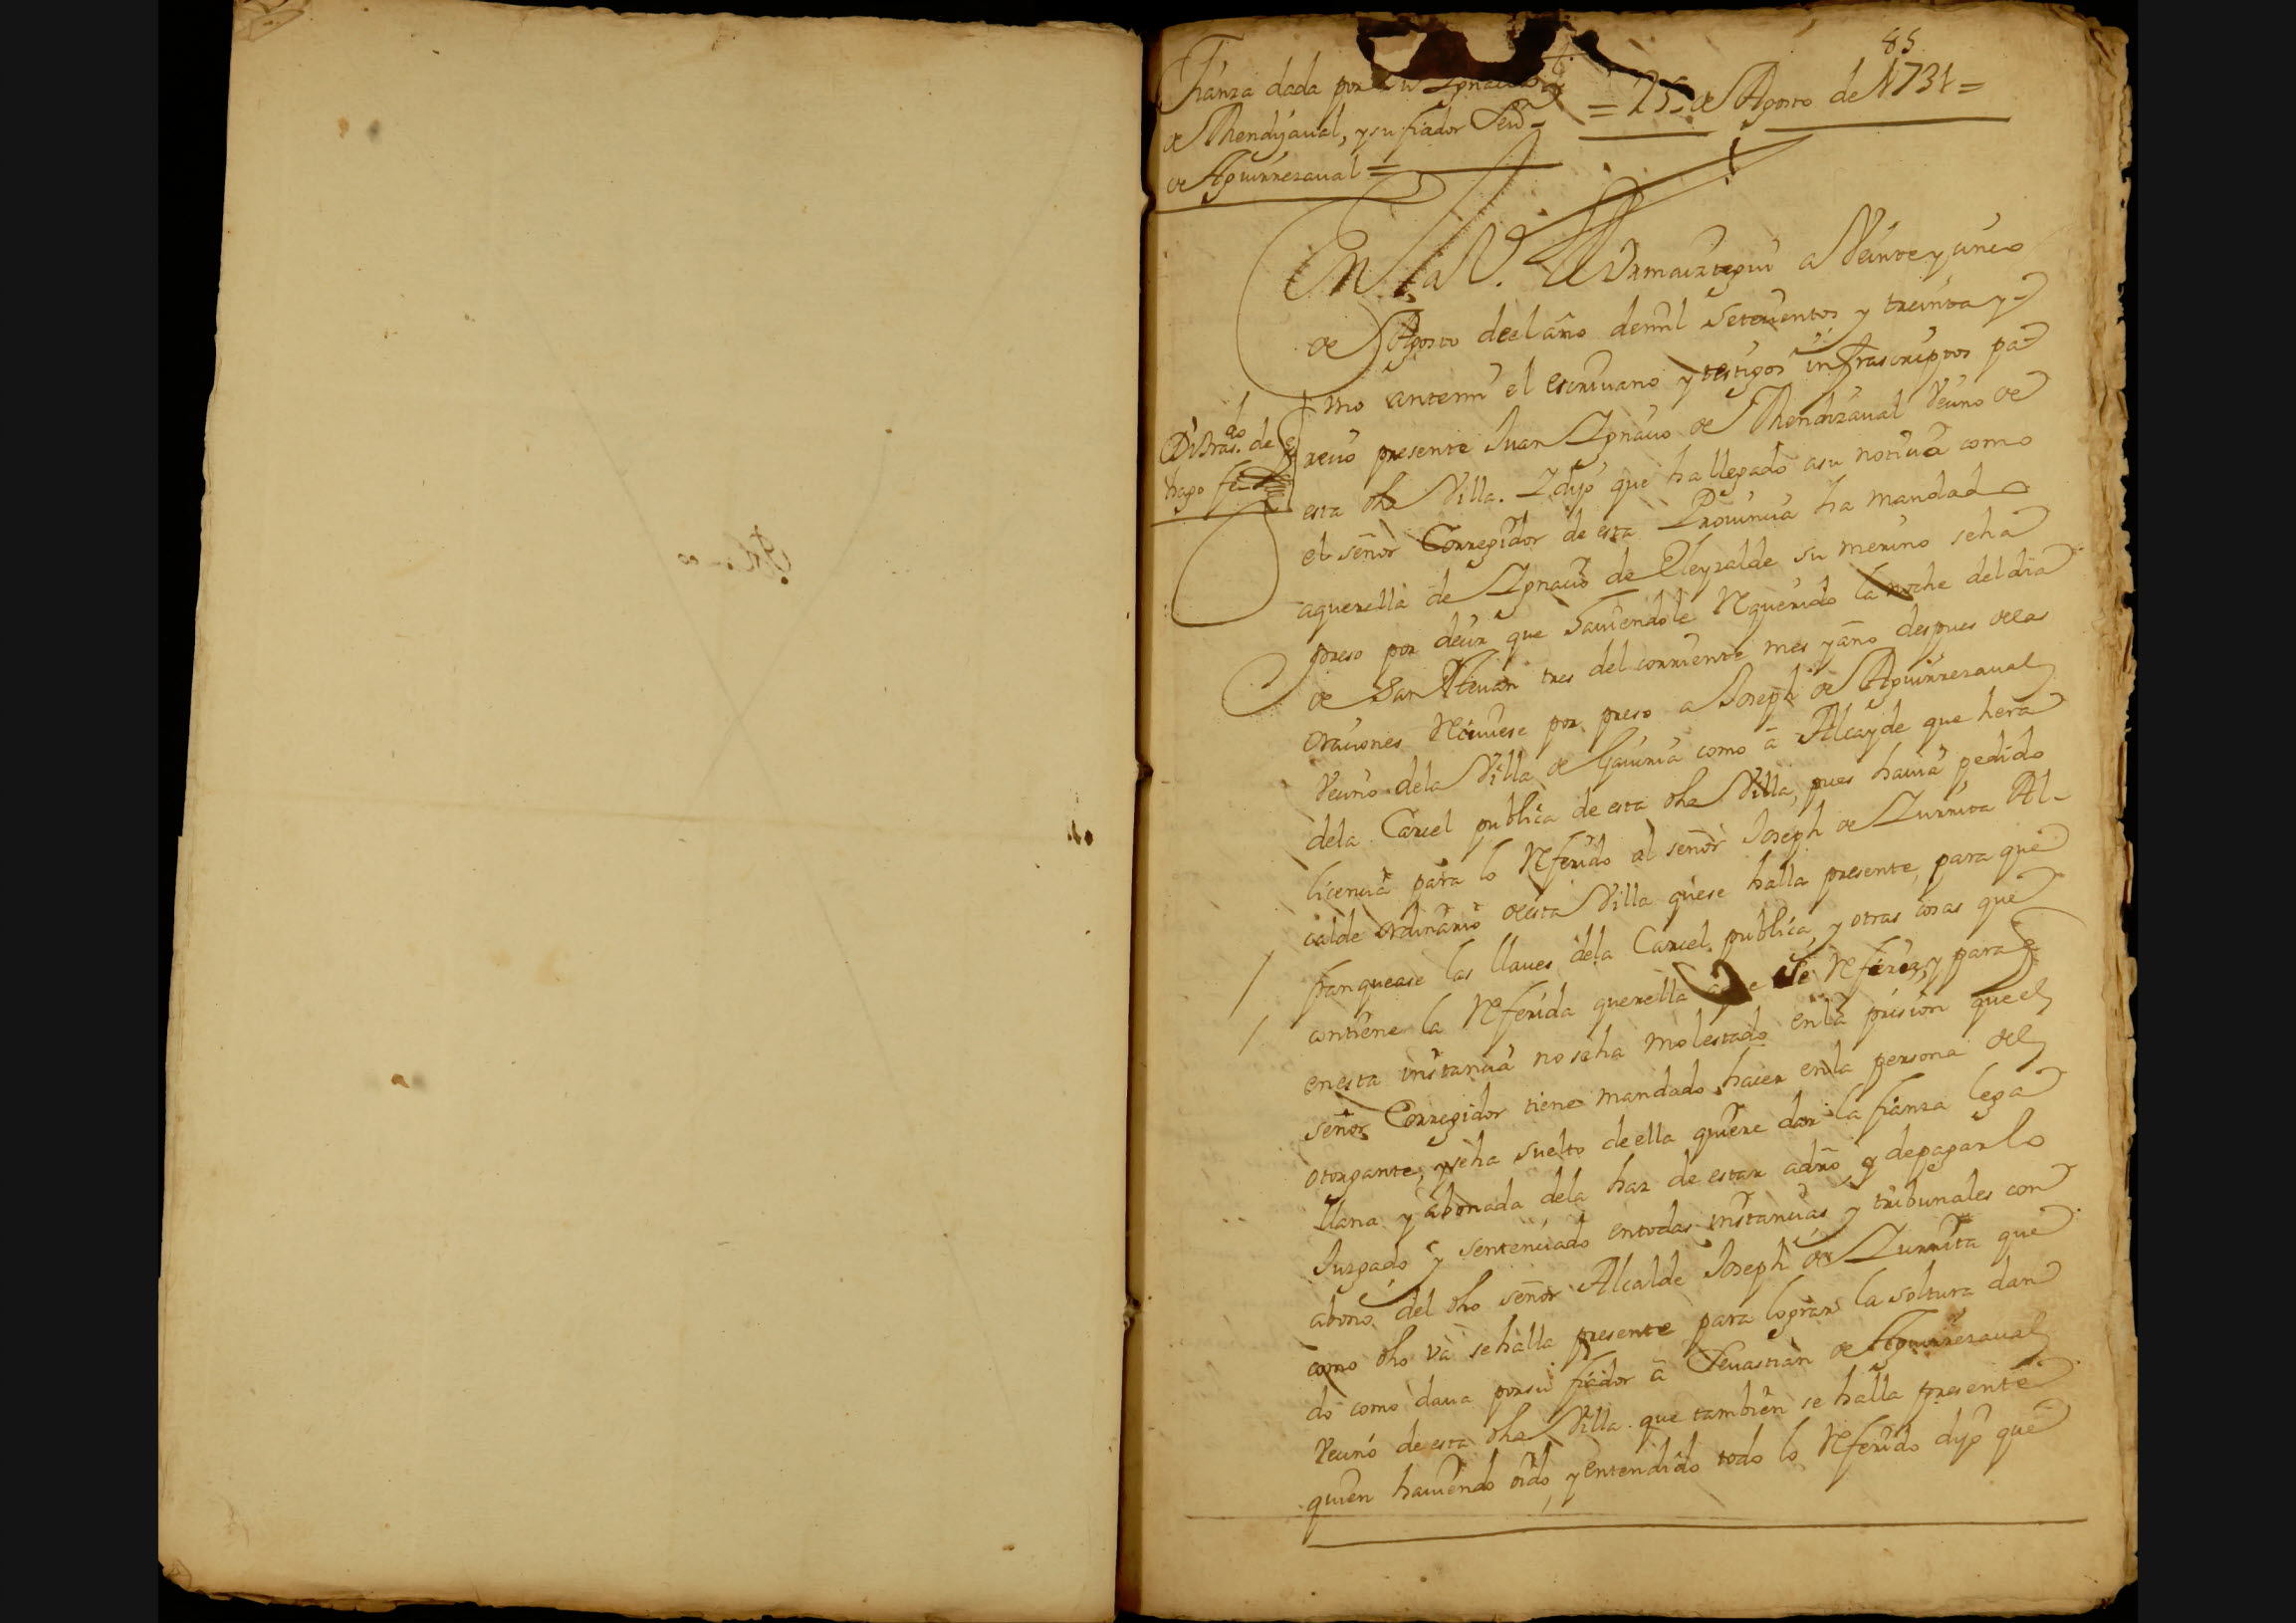 85
Fianza dada por Ju Ignacio
de Mendizaual, y su fiador Seu.n
de Aguirrezaual =
= 25. de Agosto de 1731 =
En la V.ª de Ormaiztegui a Veinte y cinco
de Agosto de el año de mil Setecientos y treinta y
uno ante mi el escriuano y testigos infrascriptos pa
recio presente Juan Ignacio de Mendizaual Vecino de
esta dha Villa. Y dijo que ha llegado a su noticia como
el señor Corregidor de esta Prouincia ha mandado
a querella de Ignacio de Eleyzalde su merino se ha
preso por decir que hauiendole Requerido la noche del dia
de San Steuan tres del corriente mes y año despues de las
oraciones Reciuiese por preso a Joseph de Aguirrezaual
Vecino de la Villa de Gauiria como â Alcayde que hera
de la Carcel publica de esta dha Villa, pues hauia pedido
licencia para lo Referido al señor Joseph de Zurrita Al-
calde ordinario de esta Villa que se halla presente, para que
franquease las llaues de la Carcel publica, y otras cosas que
contiene la Referida querella a que se Refiere, y para q
en esta instancia no se ha molestado en la prision que el
señor Corregidor tiene mandado hacer en la persona del
otorgante, y se ha suelto de ella quiere dar la fianza lega
llana y abonada de la haz de estar a dro y de pagar lo
Juzgado y sentenciado en todas instancias y tribunales con
abono del dho señor Alcalde Joseph de Zurrita que
como dho va se halla presente para lograr la soltura dan
do como daua por su fiador â Seuastian de Aguirrezaual
Vecino de esta dha Villa que tambien se halla presente
quien hauiendo oido, y entendido todo lo Referido dijo que
Di tras.do de
hago fe